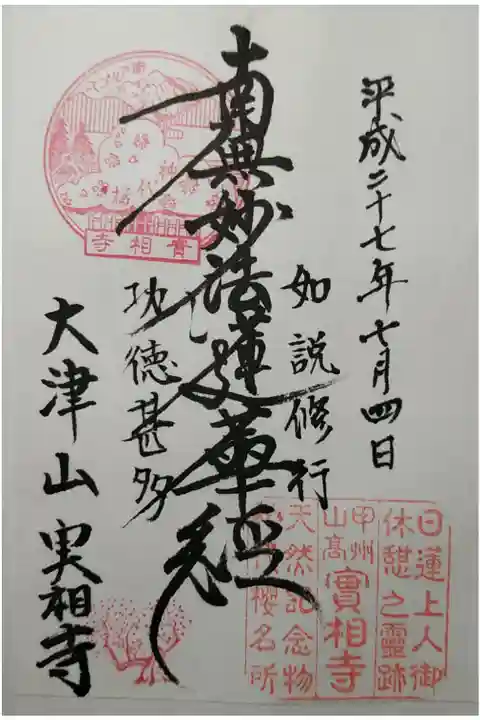 平成二十七年七月四日
如説修行
南無妙法蓮華経
功徳甚多
大津山 実相寺
神代桜
寺相實
日蓮上人御
休憩之霊跡
甲州
山高
實相寺
天然記念物
櫻名所